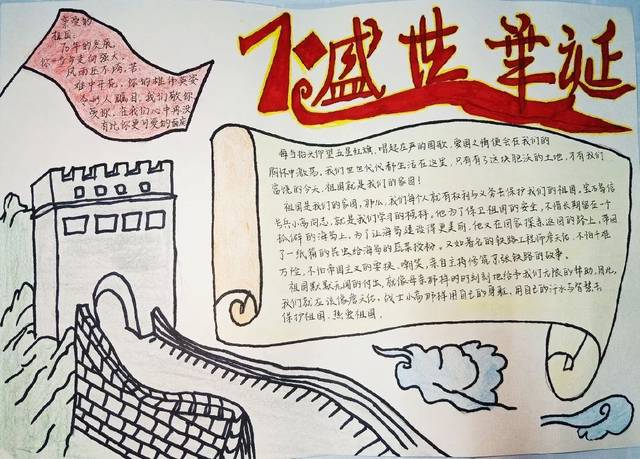 70盛世華诞
亲爱的
祖国:
70年的发展,
你一步步走向强大,
风雨压不垮,苦
难中开花,你的雄伟英姿
令世人瞩目,我们歌你
颂你,在我们心中再没
有比你更可爱的
每当抬头仰望五星红旗,唱起庄严的国歌,爱国之情便会在我们的
胸怀中激荡,我们世世代代都生活在这里,只有有了这块肥沃的土地,才有我们
富饶的今天,祖国就是我们的家园!
祖国是我们的家园,那么,我们每个人就有权利与义务去保护我们的祖国,
号兵小高同志,就是我们学习的榜样,他为了保卫祖国的安全,不惜长期留在一个
孤僻的海岛上,为了让海岛建设得更美丽,他又在回家探亲返回的路上,带回
了一纸箱的昆虫给海岛的蔬菜授粉。又如著名的铁路工程师詹天佑,不怕千难
万险,不怕帝国主义的要挟、嘲笑,亲自主持修筑京张铁路的故事。
祖国默默无闻的付出,就像母亲那样时时刻刻地给予我们无限的帮助,因此,
我们就应该像詹天佑,战士小高那样用自己的身躯,用自己的汗水与智慧去
保护祖国,热爱祖国。